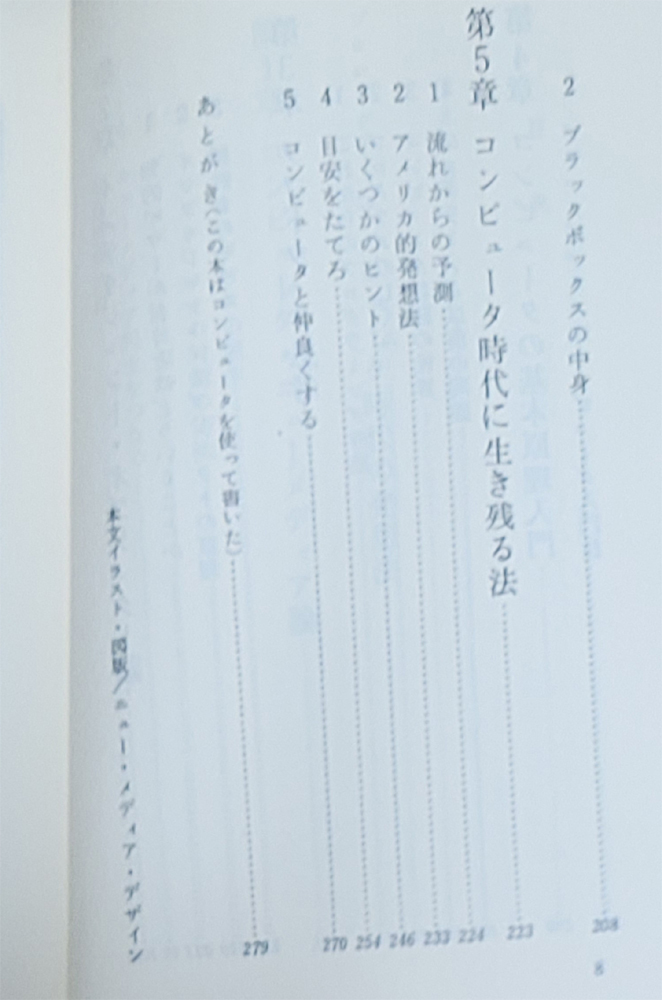 2 ブラックボックスの中身……208
第5章 コンピュータ時代に生き残る法……223
1 流れからの予測……224
2 アメリカ的発想法……233
3 いくつかのヒント……246
4 目安をたてろ……254
5 コンピュータと仲良くする……270
あとがき(この本はコンピュータを使って書いた)……279
本文イラスト・図版/ニュー・メディア・デザイン
8